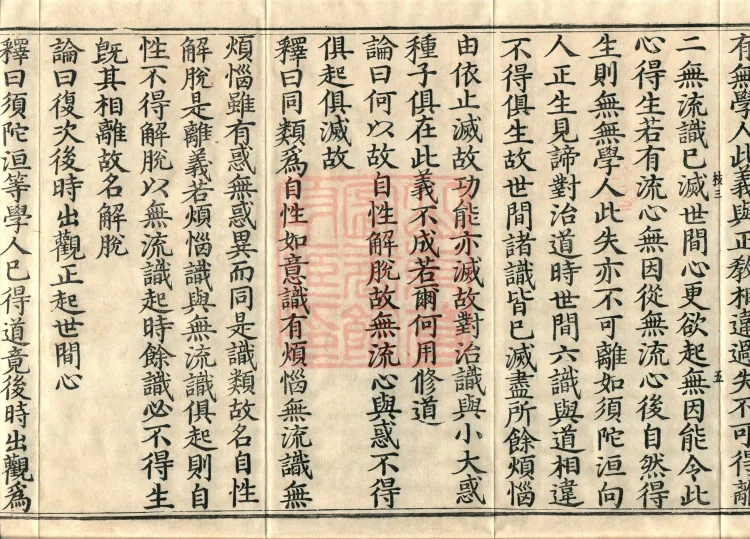 有無學人此義與正教相違過失不可得離
校三
五
二無流識已滅世間心更欲起無因能令此
心得生若有流心無因從無流心後自然得
生則無無學人此失亦不可離如須陀洹向
人正生見諦對治道時世間六識與道相違
不得俱生故世間諸識皆已滅盡所餘煩惱
由依止滅故功能亦滅故對治識與小大惑
種子俱在此義不成若爾何用修道
論曰何以故自性解脫故無流心與惑不得
俱起俱滅故
釋曰同類為自性如意識有煩惱無流識無
煩惱雖有惑無惑異而同是識類故名自性
解脫是離義若煩惱識與無流識俱起則自
性不得解脫以無流識起時餘識必不得生
旣其相離故名解脫
論曰復次後時出觀正起世間心
釋曰須陀洹等學人已得道竟後時出觀為